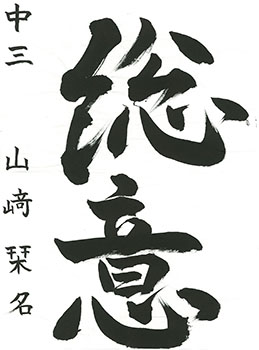 総意
中三 山﨑栞名